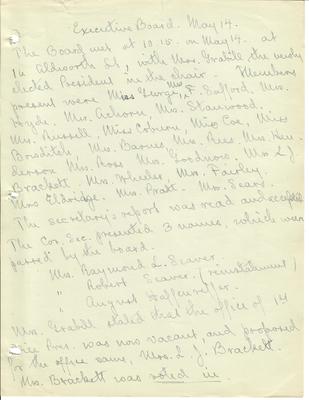 Executive Board. May 14.
The Board met at 10.15. on May 14. at
14 Aldworth St, with Mrs. Grabill, the newly
elected President in the chair. Members
present were Miss George, Mrs. F. Safford, Mrs.
Hyde. Mrs. Achorn, Mrs. Stanwood.
Mrs. Russell, Miss Coburn, Miss Coe, Miss
Bowditch, Mrs. Barnes, Mrs. Rees. Mrs. Hen-
derson Mrs. Ross Mrs. Goodnow. Mrs L J
Brackett, Mrs. Wheeler Mrs. Farley.
Mrs Eldridge. Mrs. Pratt. Mrs. Sears.
The secretary's report was read and accepted
The Cor. Sec. presented 3 names, which were
passed by the board.
Mrs. Raymond L. Seaver.
" Robert Seaver. (reinstatement)
" August
Mrs. Grabill stated that the office of 1st
Vice Pres. was now vacant, and proposed
for the office same, Mrs. L. J. Brackett.
Mrs. Brackett was voted in.